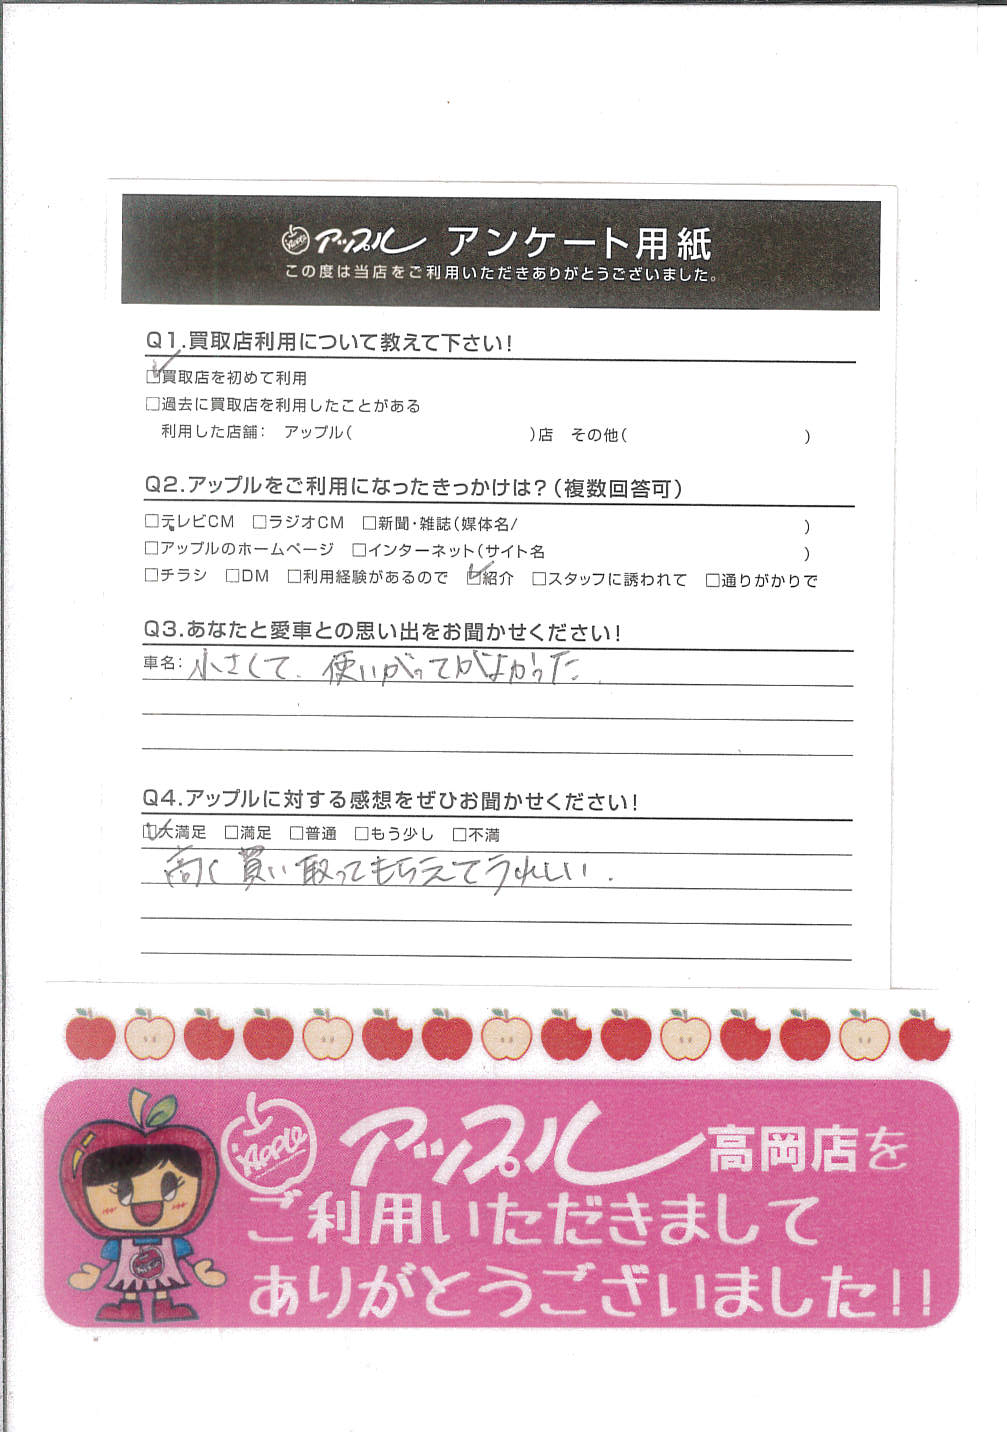 Apple アップル アンケート用紙
この度は当店をご利用いただきありがとうございました。
Q1.買取店利用について教えて下さい!
☑買取店を初めて利用
□過去に買取店を利用したことがある
利用した店舗: アップル( )店 その他( )
Q2.アップルをご利用になったきっかけは?(複数回答可)
□テレビCM □ラジオCM □新聞・雑誌(媒体名/ )
□アップルのホームページ □インターネット(サイト名 )
□チラシ □DM □利用経験があるので ☑紹介 □スタッフに誘われて □通りがかりで
Q3.あなたと愛車との思い出をお聞かせください!
車名: 小さくて、使いがってがよかった
Q4.アップルに対する感想をぜひお聞かせください!
☑大満足 □満足 □普通 □もう少し □不満
高く買い取ってもらえてうれしい.
Apple アップル 高岡店を
ご利用いただきまして
ありがとうございました!!